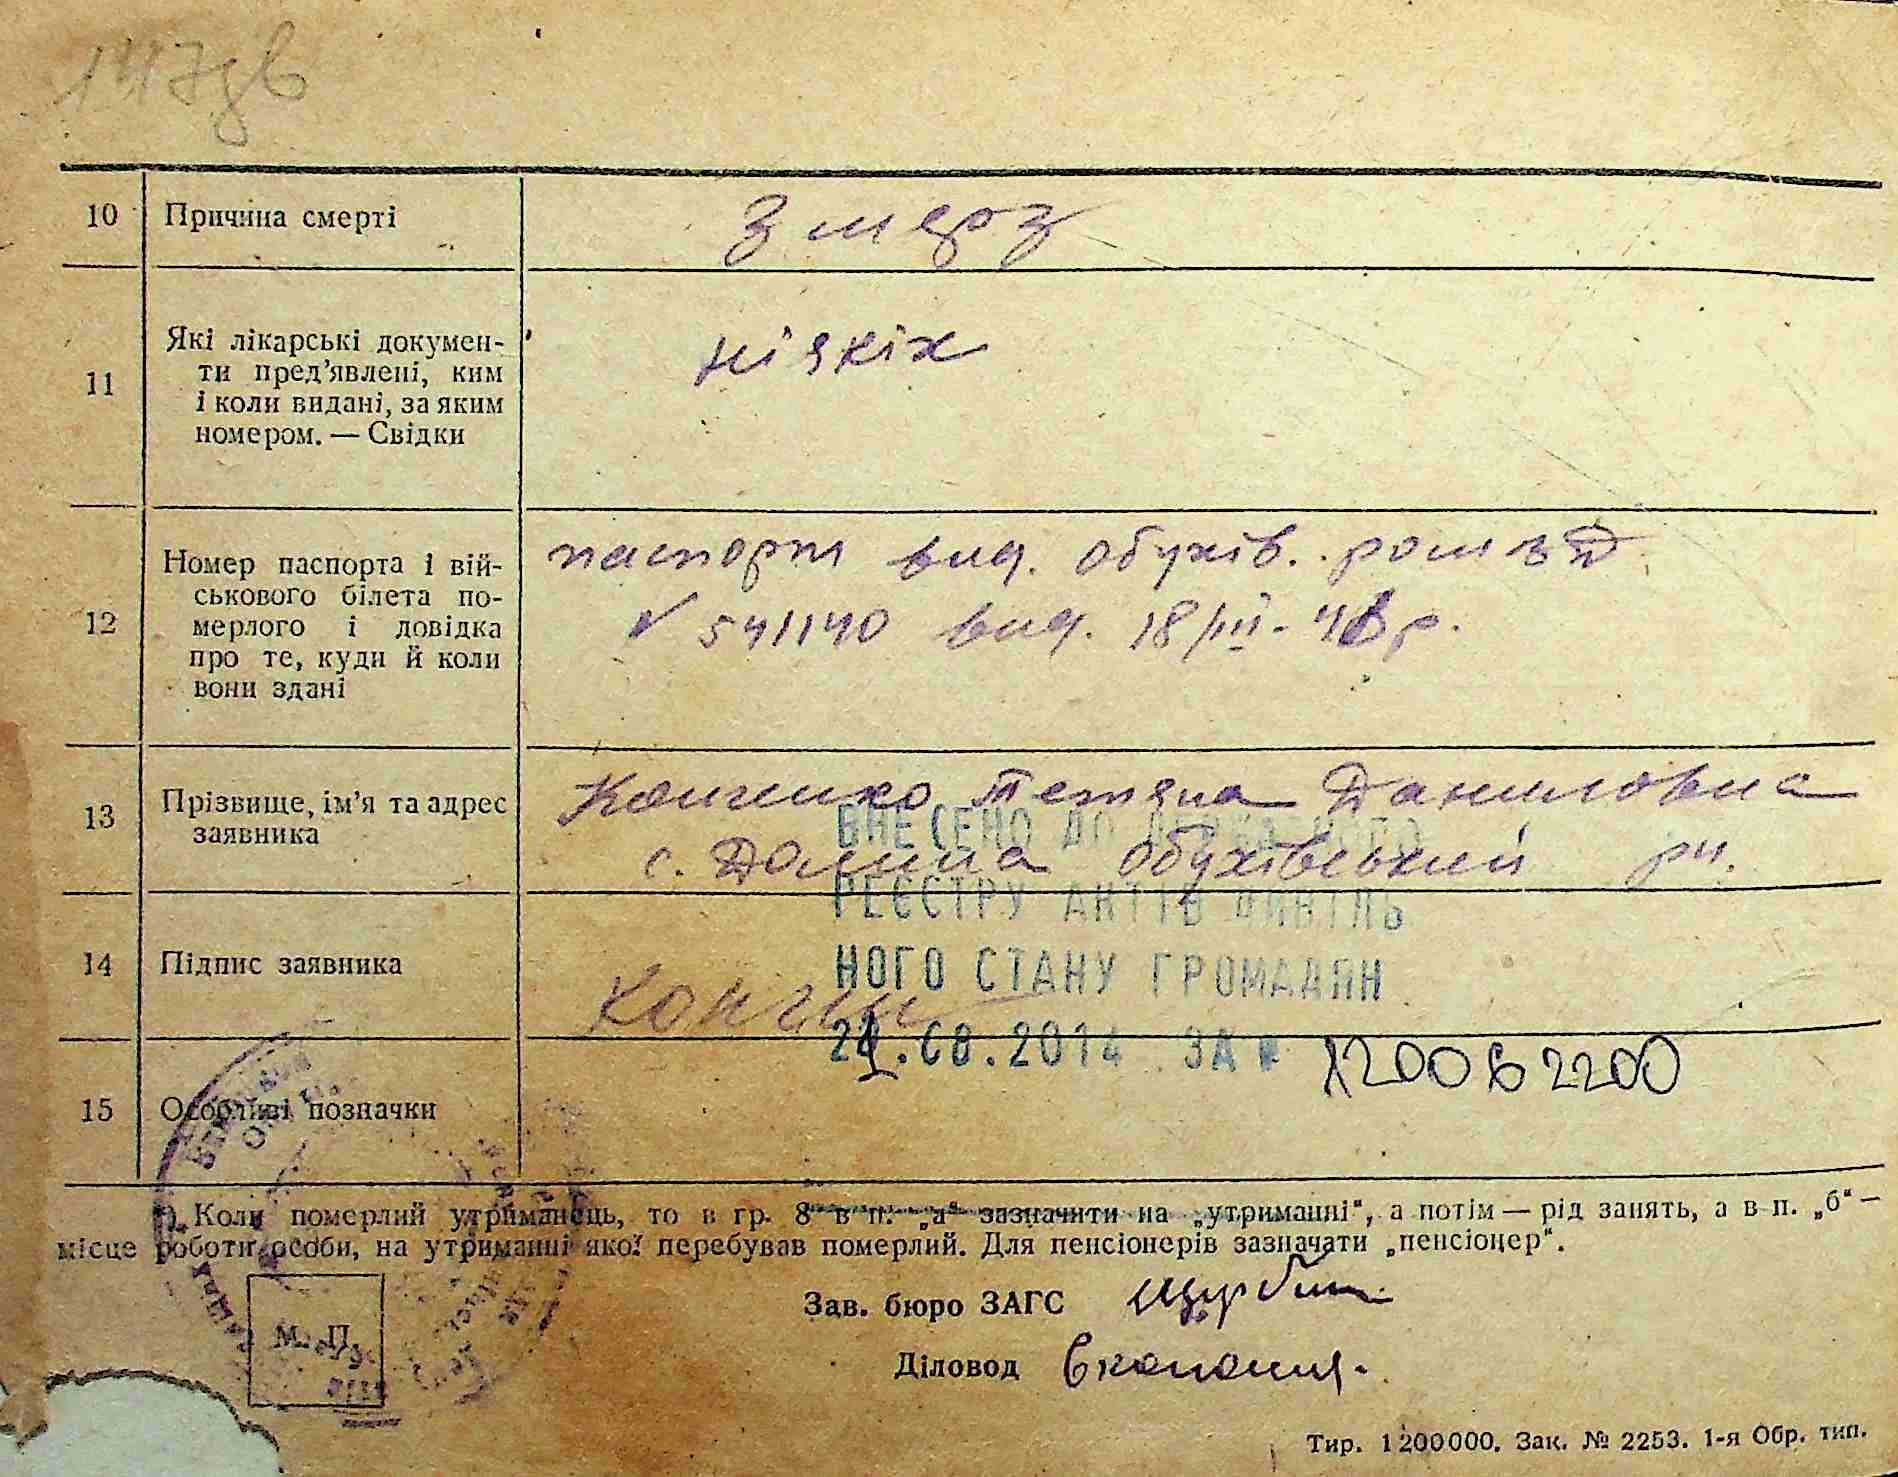 10 Причина смерті Змерз
11 Які лікарські докумен-
ти пред’явлені, ким
і коли видані, за яким
номером. — Свідки
ніякіх
12 Номер паспорта і вій-
ськового білета по-
мерлого і довідка
про те, куди й коли
вони здані
паспорт вид. Обухів.
541140 вид. 18/III-
13 Прізвище, ім’я та адрес
заявника
Тетяна Даниловна
с. Долина Обухівський рн.
ВНЕСЕНО ДО ДЕРЖАВНОГО
РЕЄСТРУ АКТІВ ЦИВІЛЬ
НОГО СТАНУ ГРОМАДЯН
21.08.2014 ЗА №
14 Підпис заявника
15 Особливі позначки
*) Коли померлий утриманець, то в гр. 8 в п. „а“ зазначити на „утриманні“, а потім — рід занять, а в п. „б“ —
місце роботи особи, на утриманні якої перебував померлий. Для пенсіонерів зазначати „пенсіонер“.
Зав. бюро ЗАГС
М. П.
Діловод
Тир. 1200000. Зак. № 2253. 1-я Обр. тип.